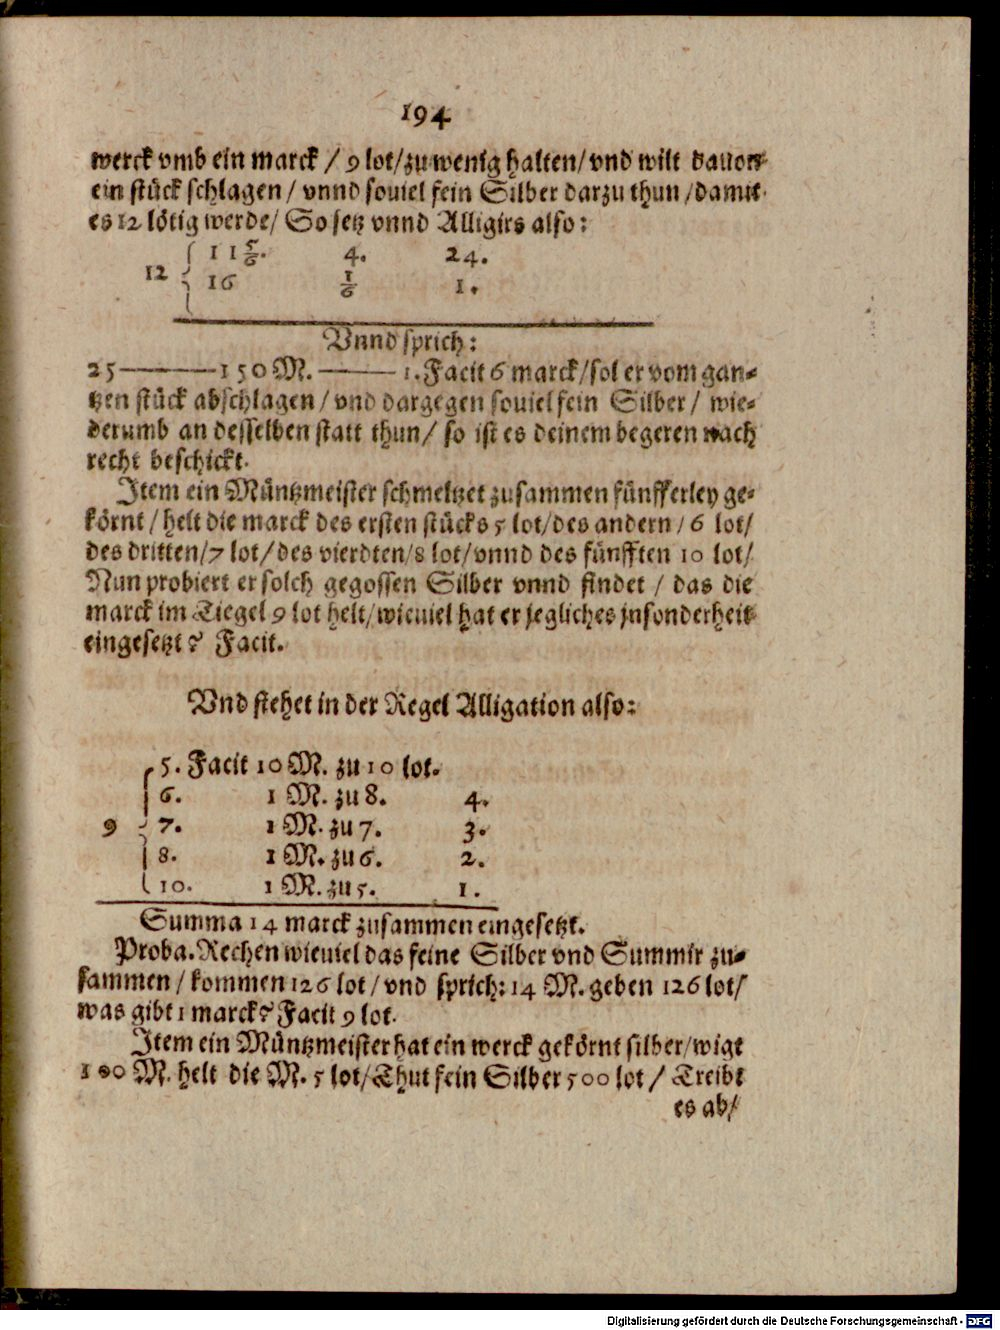 194
werck vmb ein marck / 9 lot/zu wenig halten/vnd wilt dauon
ein stück schlagen / vnnd souiel fein Silber darzu thun /damit
es 12 lötig werde/ So setz vnnd Alligirs also:
11 5/6. 4. 24.
12
16 1/6 1.
Vnnd sprich:
25———150 M.———1. Facit 6 marck/sol er vom gan-
tzen stück abschlagen / vnd dargegen souiel fein Silber / wie-
derumb an desselben statt thun/ so ist es deinem begeren nach
recht beschickt.
Item ein Müntzmeister schmeltzet zusammen fünfferley ge-
körnt / helt die marck des ersten stücks 5 lot/des andern /6 lot/
des dritten/7 lot/des vierdten/8 lot/vnnd des fünfften 10 lot/
Nun probiert er solch gegossen Silber vnnd findet / das die
marck im Tiegel 9 lot helt/wieuiel hat er jegliches jnsonderheit
eingesetzt? Facit.
Vnd stehet in der Regel Alligation also:
5. Facit 10 M. zu 10 lot.
6. 1 M. zu 8. 4.
9 7. 1 M. zu 7. 3.
8. 1 M. zu 6. 2.
10. 1 M. zu 5. 1.
Summa 14 marck zusammen eingesetzt.
Proba. Rechen wieuiel das feine Silber vnd Summir zu-
sammen / kommen 126 lot / vnd sprich: 14 M. geben 126 lot/
was gibt 1 marck? Facit 9 lot.
Item ein Müntzmeister hat ein werck gekörnt silber/wigt
100 M. helt die M. 5 lot/Thut fein Silber 500 lot / Treibt
es ab/
Digitalisierung gefördert durch die Deutsche Forschungsgemeinschaft - DFG